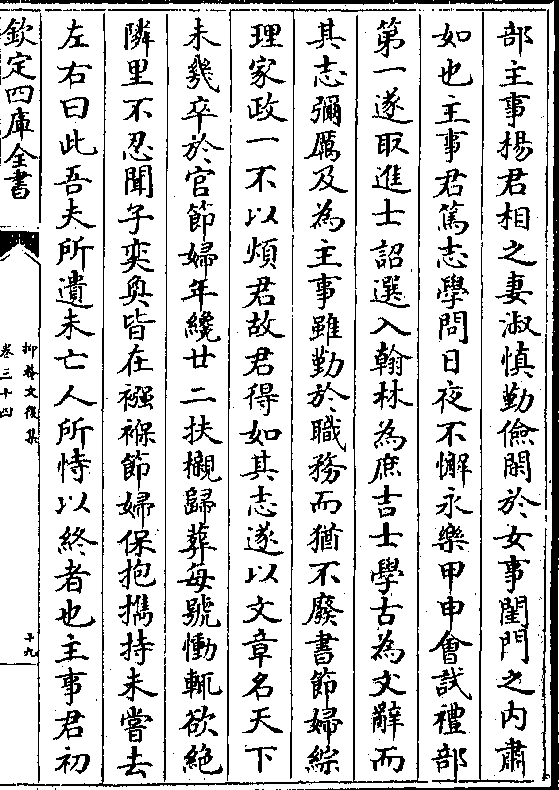 部主事楊君相之妻淑慎勤儉閑於女事閨門之内肅
如也主事君篤志學問日夜不懈永樂甲申會試禮部
第一遂取進士詔選入翰林為庶吉士學古為文辭而
其志彌厲及為主事雖勤於職務而猶不廢書節婦綜
理家政一不以煩君故君得如其志遂以文章名天下
未幾卒於官節婦年纔廿二扶櫬歸葬每號慟輒欲絶
隣里不忍聞子奕奐皆在襁褓節婦保抱擕持未嘗去
左右曰此吾夫所遺未亡人所恃以終者也主事君初
欽定四庫全書
抑菴文後集
卷三十四
十九